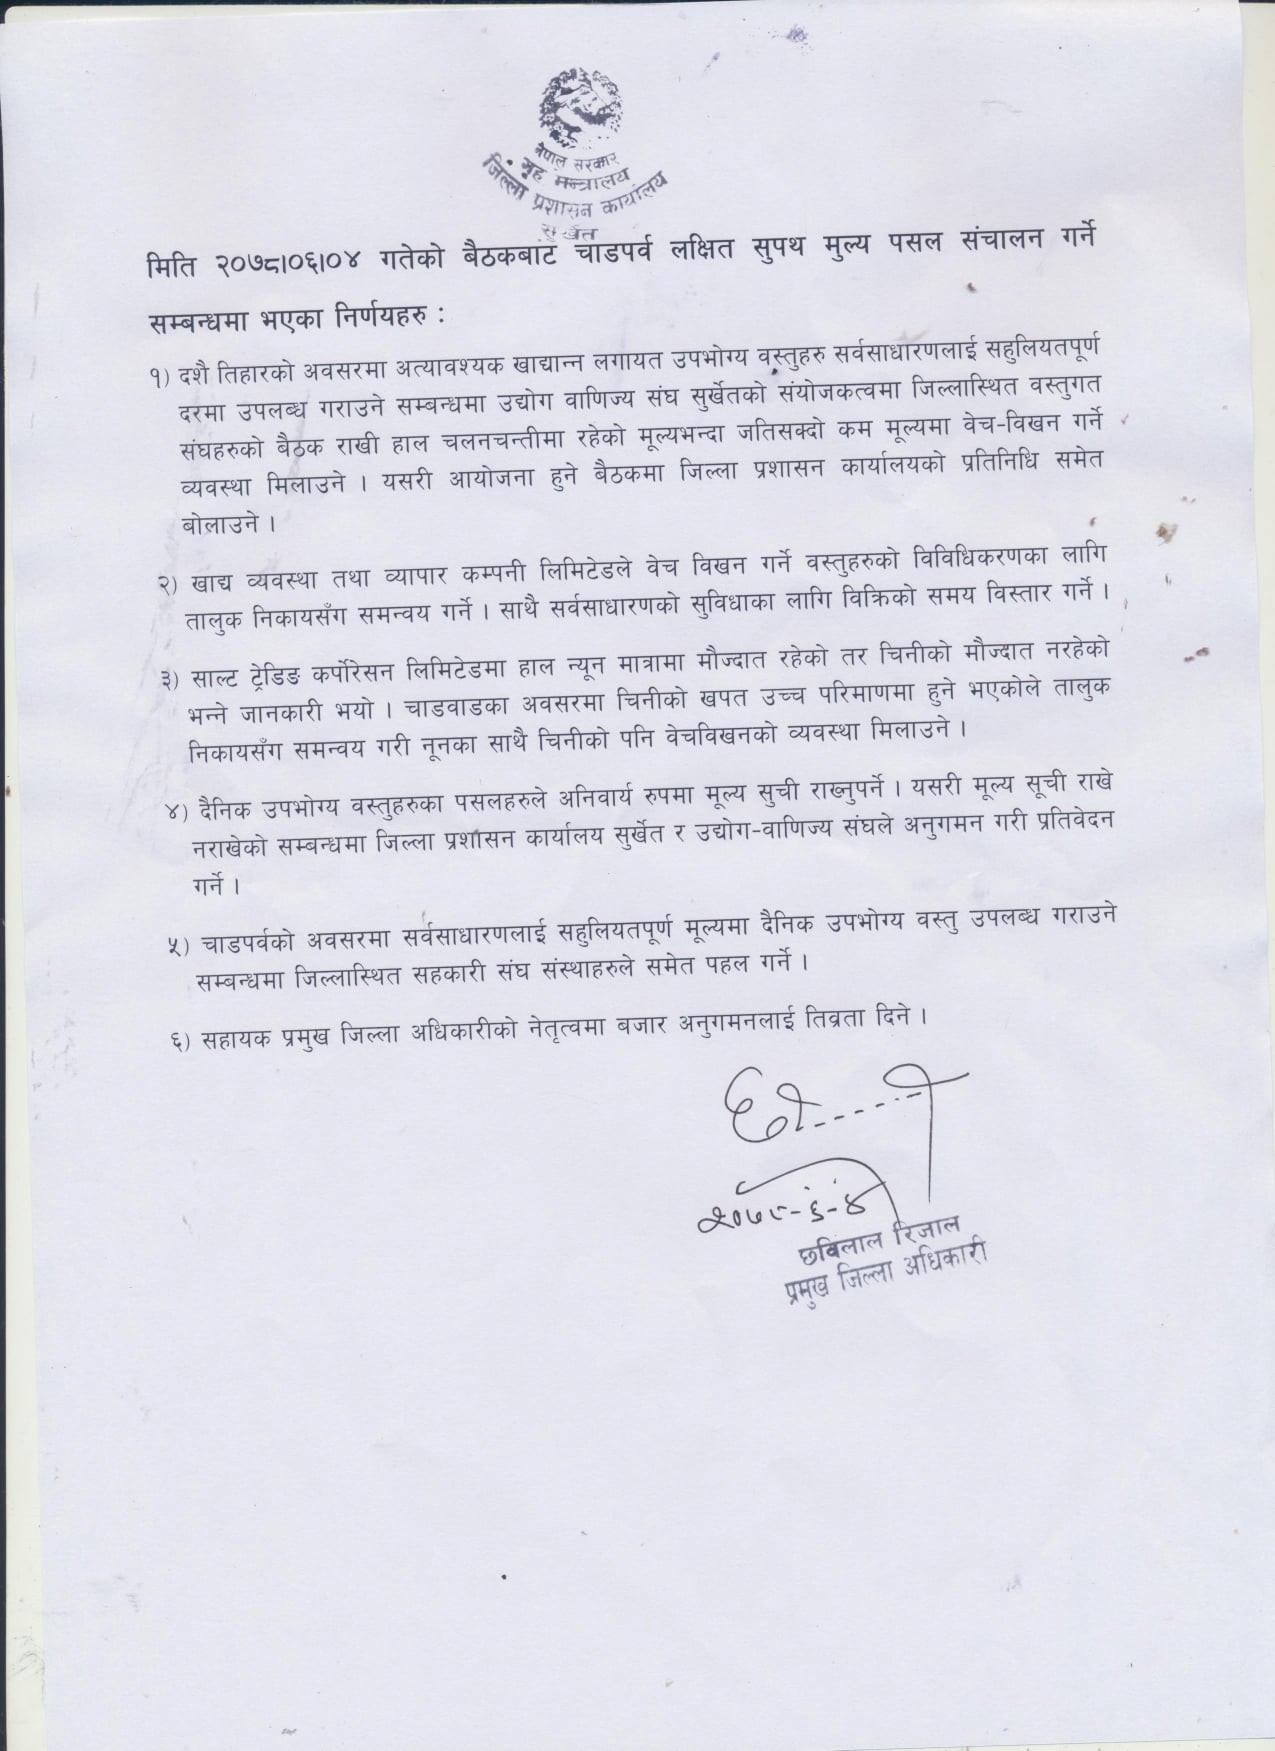 नेपाल सरकार
गृह मन्त्रालय
जिल्ला प्रशासन कार्यालय
सुर्खेत
मिति २०७८।०६।०४ गतेको बैठकबाट चाडपर्व लक्षित सुपथ मुल्य पसल संचालन गर्ने
सम्बन्धमा भएका निर्णयहरु :
१) दशै तिहारको अवसरमा अत्यावश्यक खाद्यान्न लगायत उपभोग्य वस्तुहरु सर्वसाधारणलाई सहुलियतपूर्ण
दरमा उपलब्ध गराउने सम्बन्धमा उद्योग वाणिज्य संघ सुर्खेतको संयोजकत्वमा जिल्लास्थित वस्तुगत
संघहरुको बैठक राखी हाल चलनचन्तीमा रहेको मूल्यभन्दा जतिसक्दो कम मूल्यमा वेच-विखन गर्ने
व्यवस्था मिलाउने । यसरी आयोजना हुने बैठकमा जिल्ला प्रशासन कार्यालयको प्रतिनिधि समेत
बोलाउने ।
२) खाद्य व्यवस्था तथा व्यापार कम्पनी लिमिटेडले वेच विखन गर्ने वस्तुहरुको विविधिकरणका लागि
तालुक निकायसँग समन्वय गर्ने । साथै सर्वसाधारणको सुविधाका लागि विक्रिको समय विस्तार गर्ने ।
३) साल्ट ट्रेडिङ कर्पोरेसन लिमिटेडमा हाल न्यून मात्रामा मौज्दात रहेको तर चिनीको मौज्दात नरहेको
भन्ने जानकारी भयो । चाडवाडका अवसरमा चिनीको खपत उच्च परिमाणमा हुने भएकोले तालुक
निकायसँग समन्वय गरी नूनका साथै चिनीको पनि वेचविखनको व्यवस्था मिलाउने ।
४) दैनिक उपभोग्य वस्तुहरुका पसलहरुले अनिवार्य रुपमा मूल्य सुची राख्नुपर्ने । यसरी मूल्य सूची राखे
नराखेको सम्बन्धमा जिल्ला प्रशासन कार्यालय सुर्खेत र उद्योग-वाणिज्य संघले अनुगमन गरी प्रतिवेदन
गर्ने ।
५) चाडपर्वको अवसरमा सर्वसाधारणलाई सहुलियतपूर्ण मूल्यमा दैनिक उपभोग्य वस्तु उपलब्ध गराउने
सम्बन्धमा जिल्लास्थित सहकारी संघ संस्थाहरुले समेत पहल गर्ने ।
६) सहायक प्रमुख जिल्ला अधिकारीको नेतृत्वमा बजार अनुगमनलाई तिव्रता दिने ।
२०७८-६-४
छविलाल रिजाल
प्रमुख जिल्ला अधिकारी